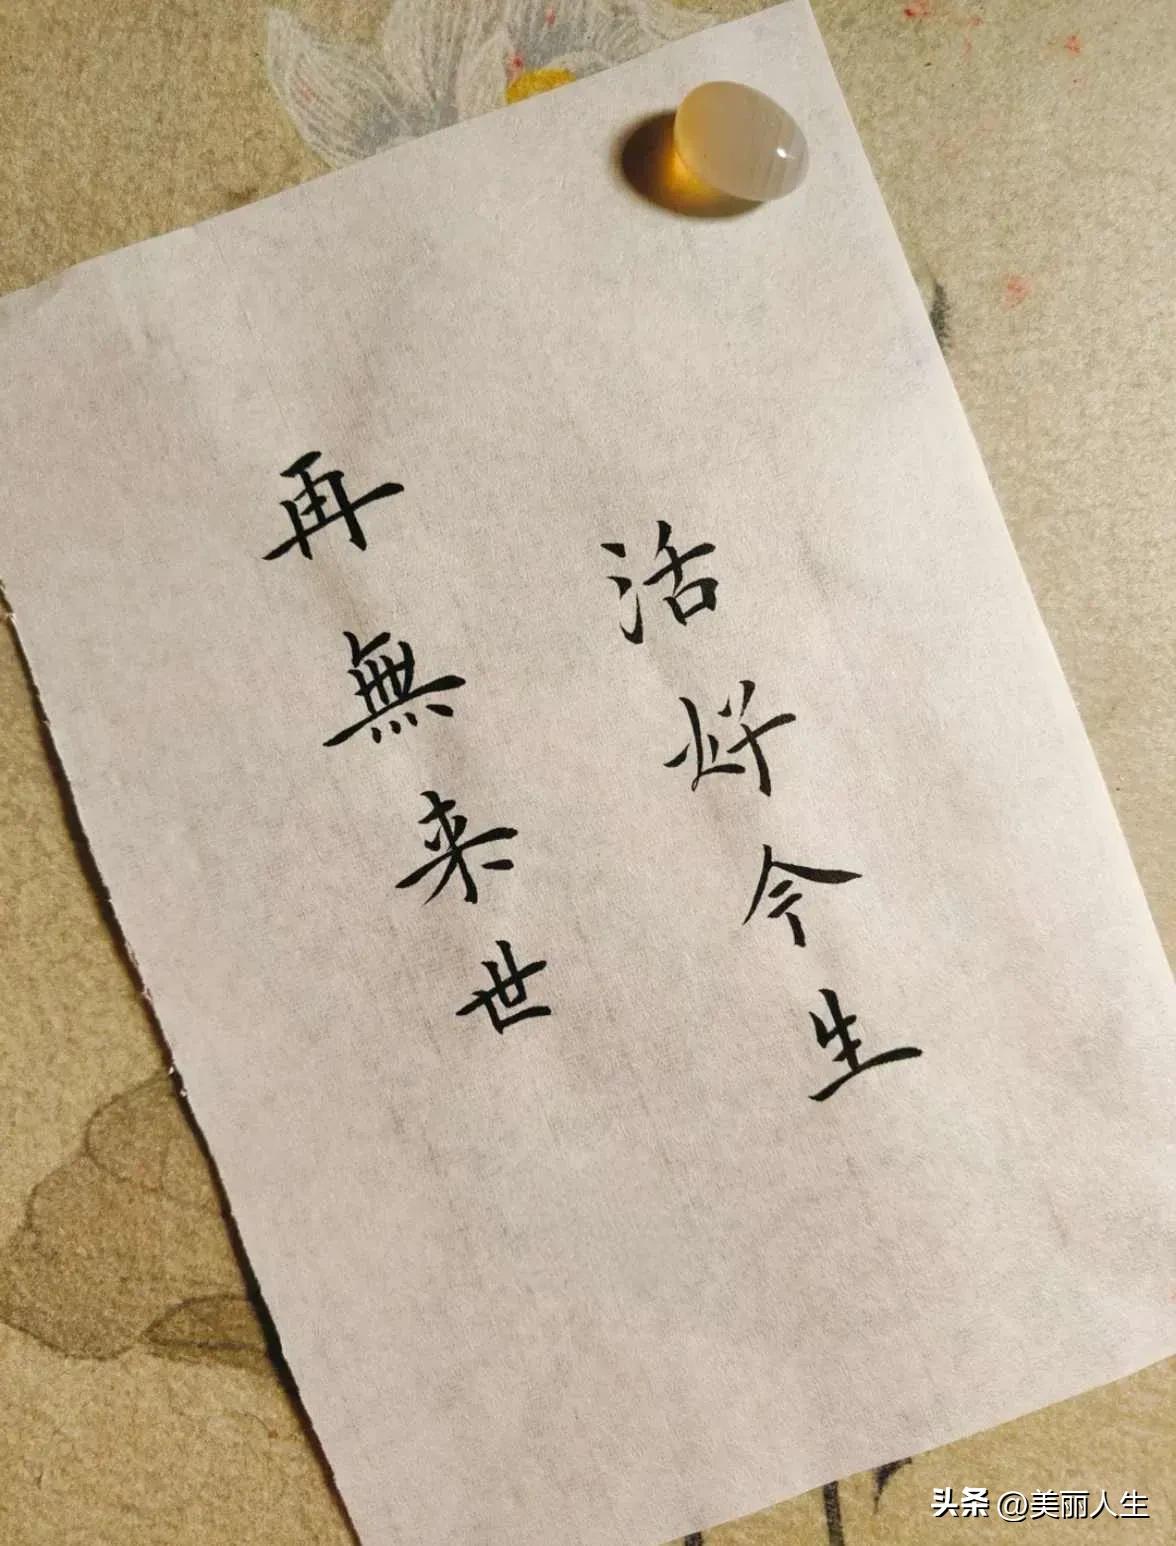 活好今生
再無来世
头条 @美丽人生